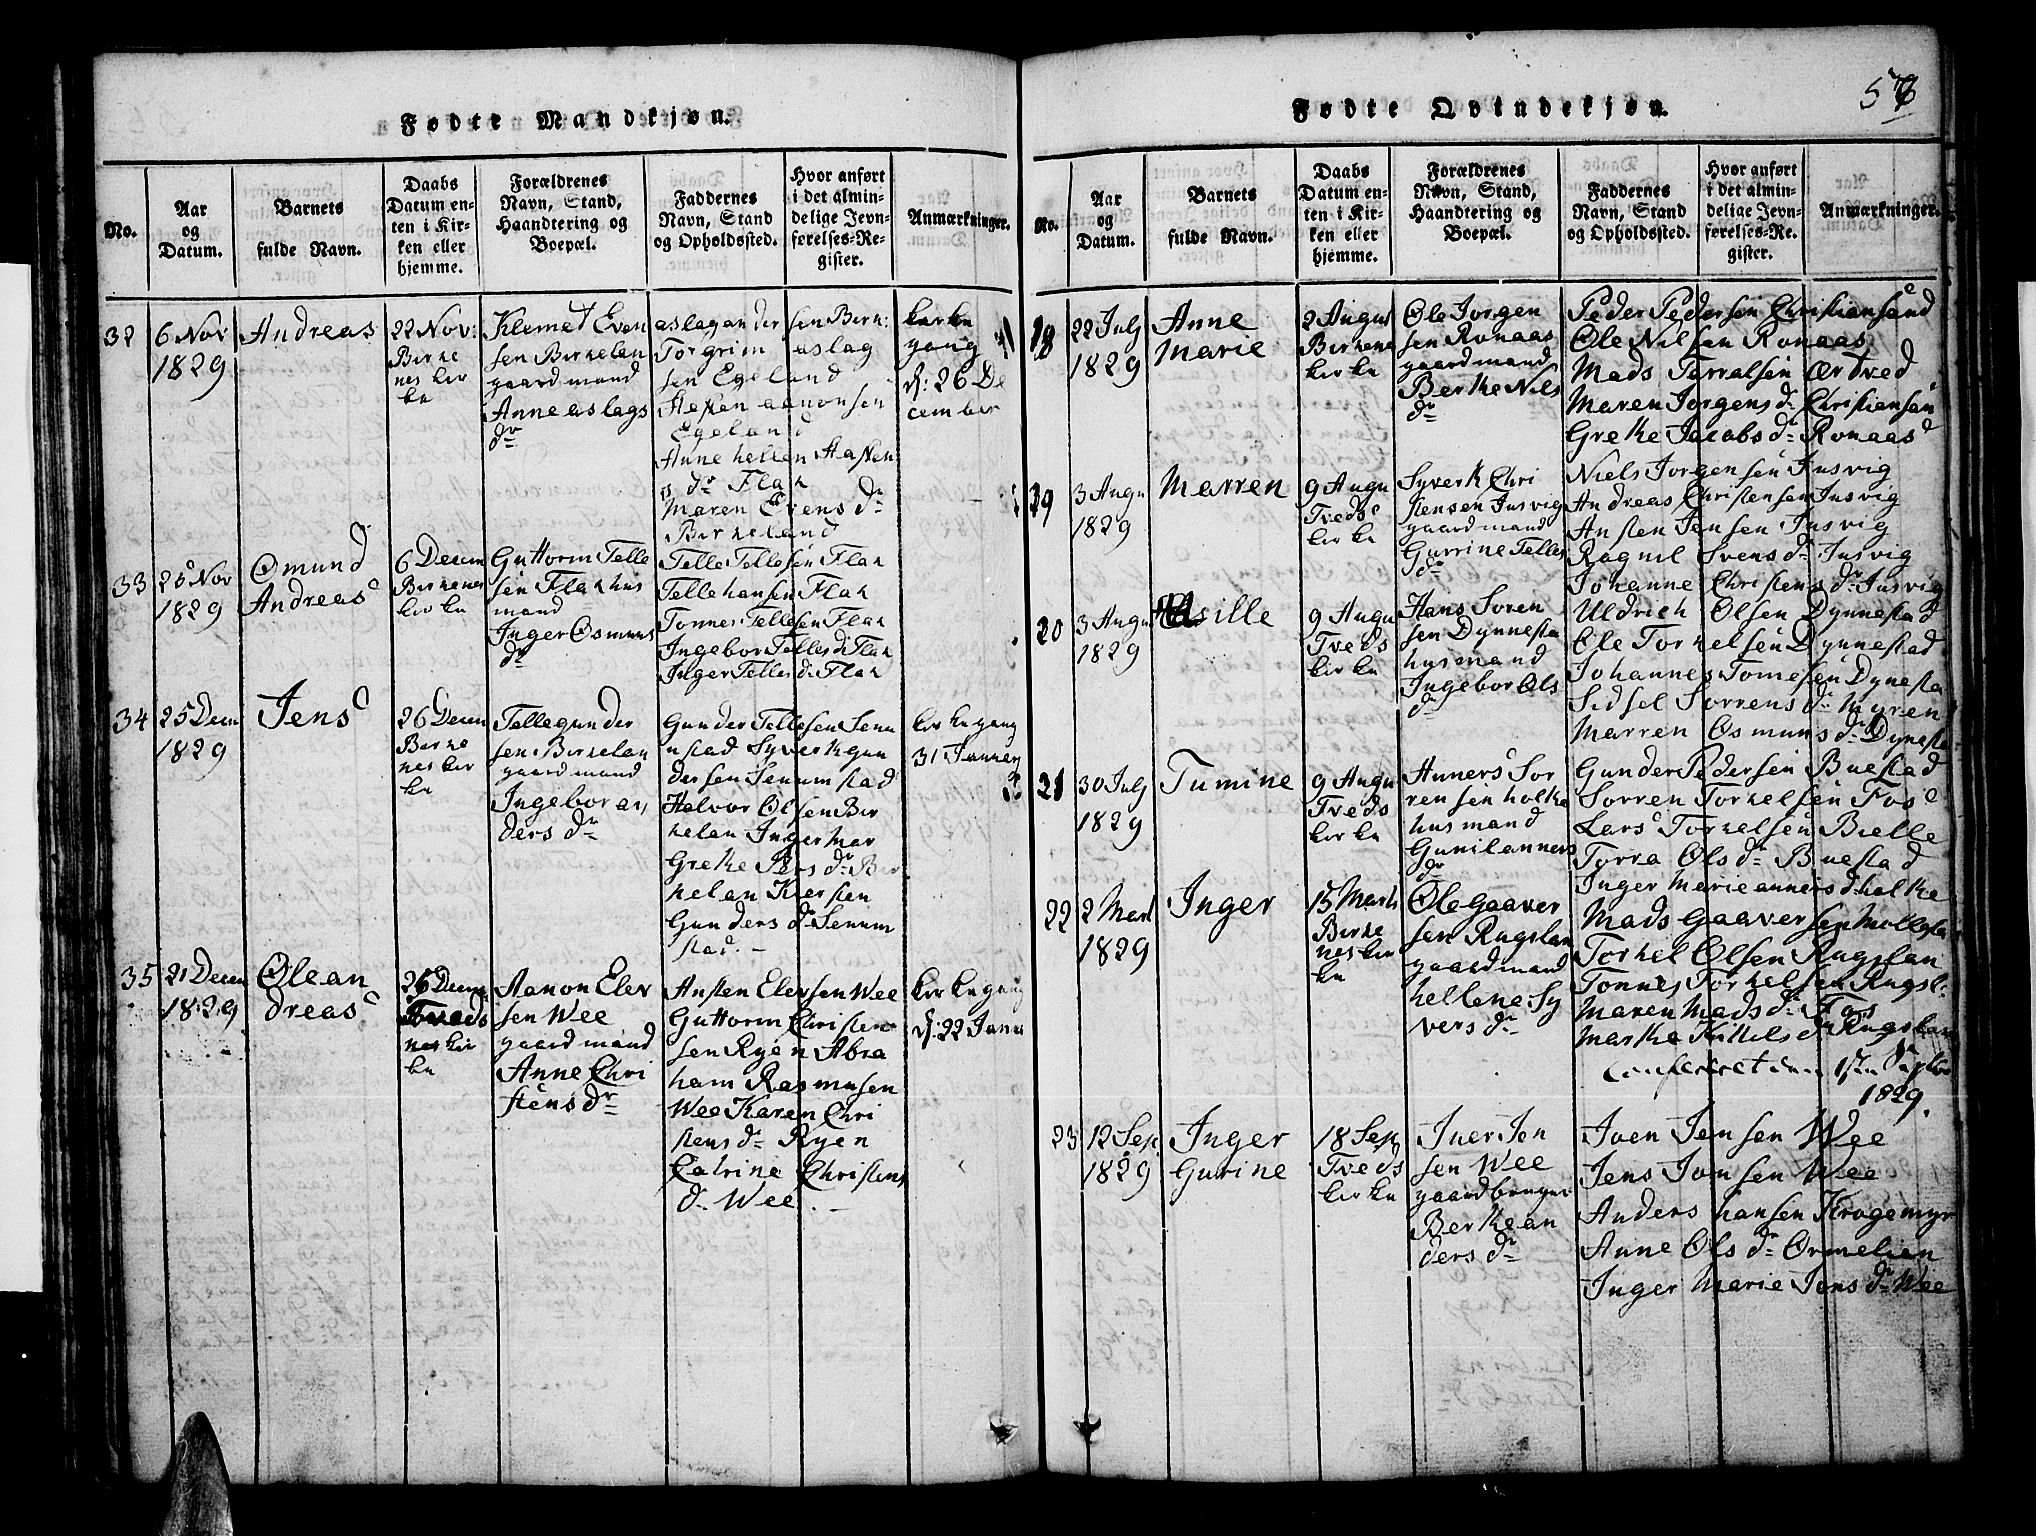 57
Fødte Mandkjøn.
No.
Aar
og
Datum.
Barnets
fulde Navn.
Daabs
Datum en-
ten i Kir-
ken eller
hjemme.
Forældrenes
Navn, Stand,
Haandtering og
Boepæl.
Faddernes
Navn, Stand
og Opholdssted.
Hvor anført
i det almin-
delige Jevn-
førelses-Re-
gister.
Anmærkninger.
32
6 Nov
1829
Andreas
22 Nov:
Birke
nes kir
ke
Klemet Even
sen Birkelan
gaardmand
Anne aslags
dr
aslag andersen Birk:
Torgrim aslag
sen Egeland
Sesten aanonsen
Egeland
Anne hellen Aasten
s dr Flak
Maren Evens dr
Birkeland
kirke
gang
d: 26 De
cember
33
25 Nov
1829
Osmund
Andreas
6 Decem
Birkenes
kir ke
Guttorm Telle
sen Flak hus
mand
Inger Osmuns
dr
Telle Tellesen Flak
Telle hansen Flak
Tonnes Tellesen Flak
Ingebor Telles d: Flak
Inger Telles d: Flak
34
25 Decm
1829
Jens
26 Decem
Birke
nes kir
ke
Telle gunder
sen Birkelan
gaardmand
Ingebor an
ders dr
Gunder Tellesen Senu
mstad Syvert gun
dersen Senumstad
Halvor Olsen Bir
kelan Inger mar
Grethe Pers dr Bir
kelan Kirsten
Gunders dr Senum
stad. –
kirkegang
31 Januery
35
21 Decem
1829
Ole an
dreas
26 Decem
nes kir
ke
Aanon Elev
sen Wee
gaardmand
Anne Chri
stens dr
Austen Elevsen Wee
Guttorm Christen
sen Ryen Abra
ham Rasmusen
Wee Karen Chri
stens dr Ryen
Catrine Christens
d. Wee. –
kirkegang
d: 22 Janu
Fødte Qvindekjøn.
No.
Aar
og
Datum.
Barnets
fulde Navn.
Daabs
Datum en-
ten i Kir-
ken eller
hjemme.
Forældrenes
Navn, Stand,
Haandtering og
Boepæl.
Faddernes
Navn, Stand
og Opholdssted.
Hvor anført
i det almin-
delige Jevn-
førelses-Re-
gister.
Anmærkninger.
18
22 July
1829
Anne
Marie
2 August
Birkene
kir ke
Ole Jorgen
sen Ronaas
gaardmand
Berthe Nils
dr
Peder Pedersen Christiansand
Ole Nilsen Ronaas
Mads Terralsen Ærtved
Maren Jorgens dr Christiansan
Grethe Jacobs dr Ronaas
19
3 Augu
1829
Marren
9 Augu
Tveds
kir ke
Syvert Chri
stensen Jusvig
gaardmand
Gurrine Telles
dr
Niels Jorgensen Jusvig
Andreas Christensen Jusvig
Austen Jensen Jusvig
Ragnil Svens dr Jusvig
Johanne Christens dr Jusvig
20
3 Augu
1829
Asille
9 Augu
Tveds
kir ke
Hans Soren
sen Dynnesta
husmand
Ingebor Ols
dr
Uldrich Olsen Dynnestad
Ole Torkelsen Dynnestad
Johannes Tomesen Dynesta
Sidsel Sorrens dr Myren
Marren Osmuns dr Dynesta
21
30 July
1829
Tumine
9 Augu
Tveds
kir ke
Anners Sor
rensen holte
husmand
Gunil anners
dr
Gunder Pedersen Buestad
Sorren Torkelsen Fos
Lars Torkelsen Bielle
Torra Ols dr Buestad
Inger Marie anners d. holte
22
2 Mart
1829
Inger
15 Marts
Birke
nes kir
ke
Ole Gaaver
sen Rugslan
gaardmand
hellene Sy
vers dr
Mads Gaaversen Mollesta
Torkel Olsen Rugslan
Tonnes Torkelsen Rugsl:
Maren Mads dr Fos
Marthe Kittels d Rugslan
Confereret den 17de Septbr
1829.
23
12 Sep
1829
Inger
Gurine
18 Sep
Tveds
kir ke
Iver Jen
sen Wee
gaardbruger
Berthe an
ders dr
Iven Jensen Wee
Jens Jonsen Wee
Anders hansen Krogemyr
Anne Ols dr Ormelien
Inger Marie Jons dr Wee